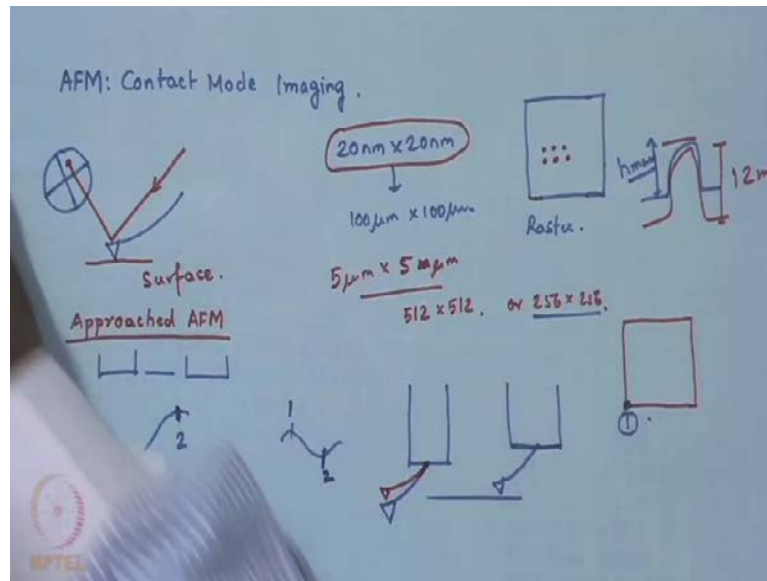 AFM: Contact Mode Imaging.
20nm × 20nm
100µm × 100µm
Raster.
hmax
12 m
Surface.
5µm × 5 µm
512 × 512. or 256 × 256.
Approached AFM
1
2
2
1.
NPTEL